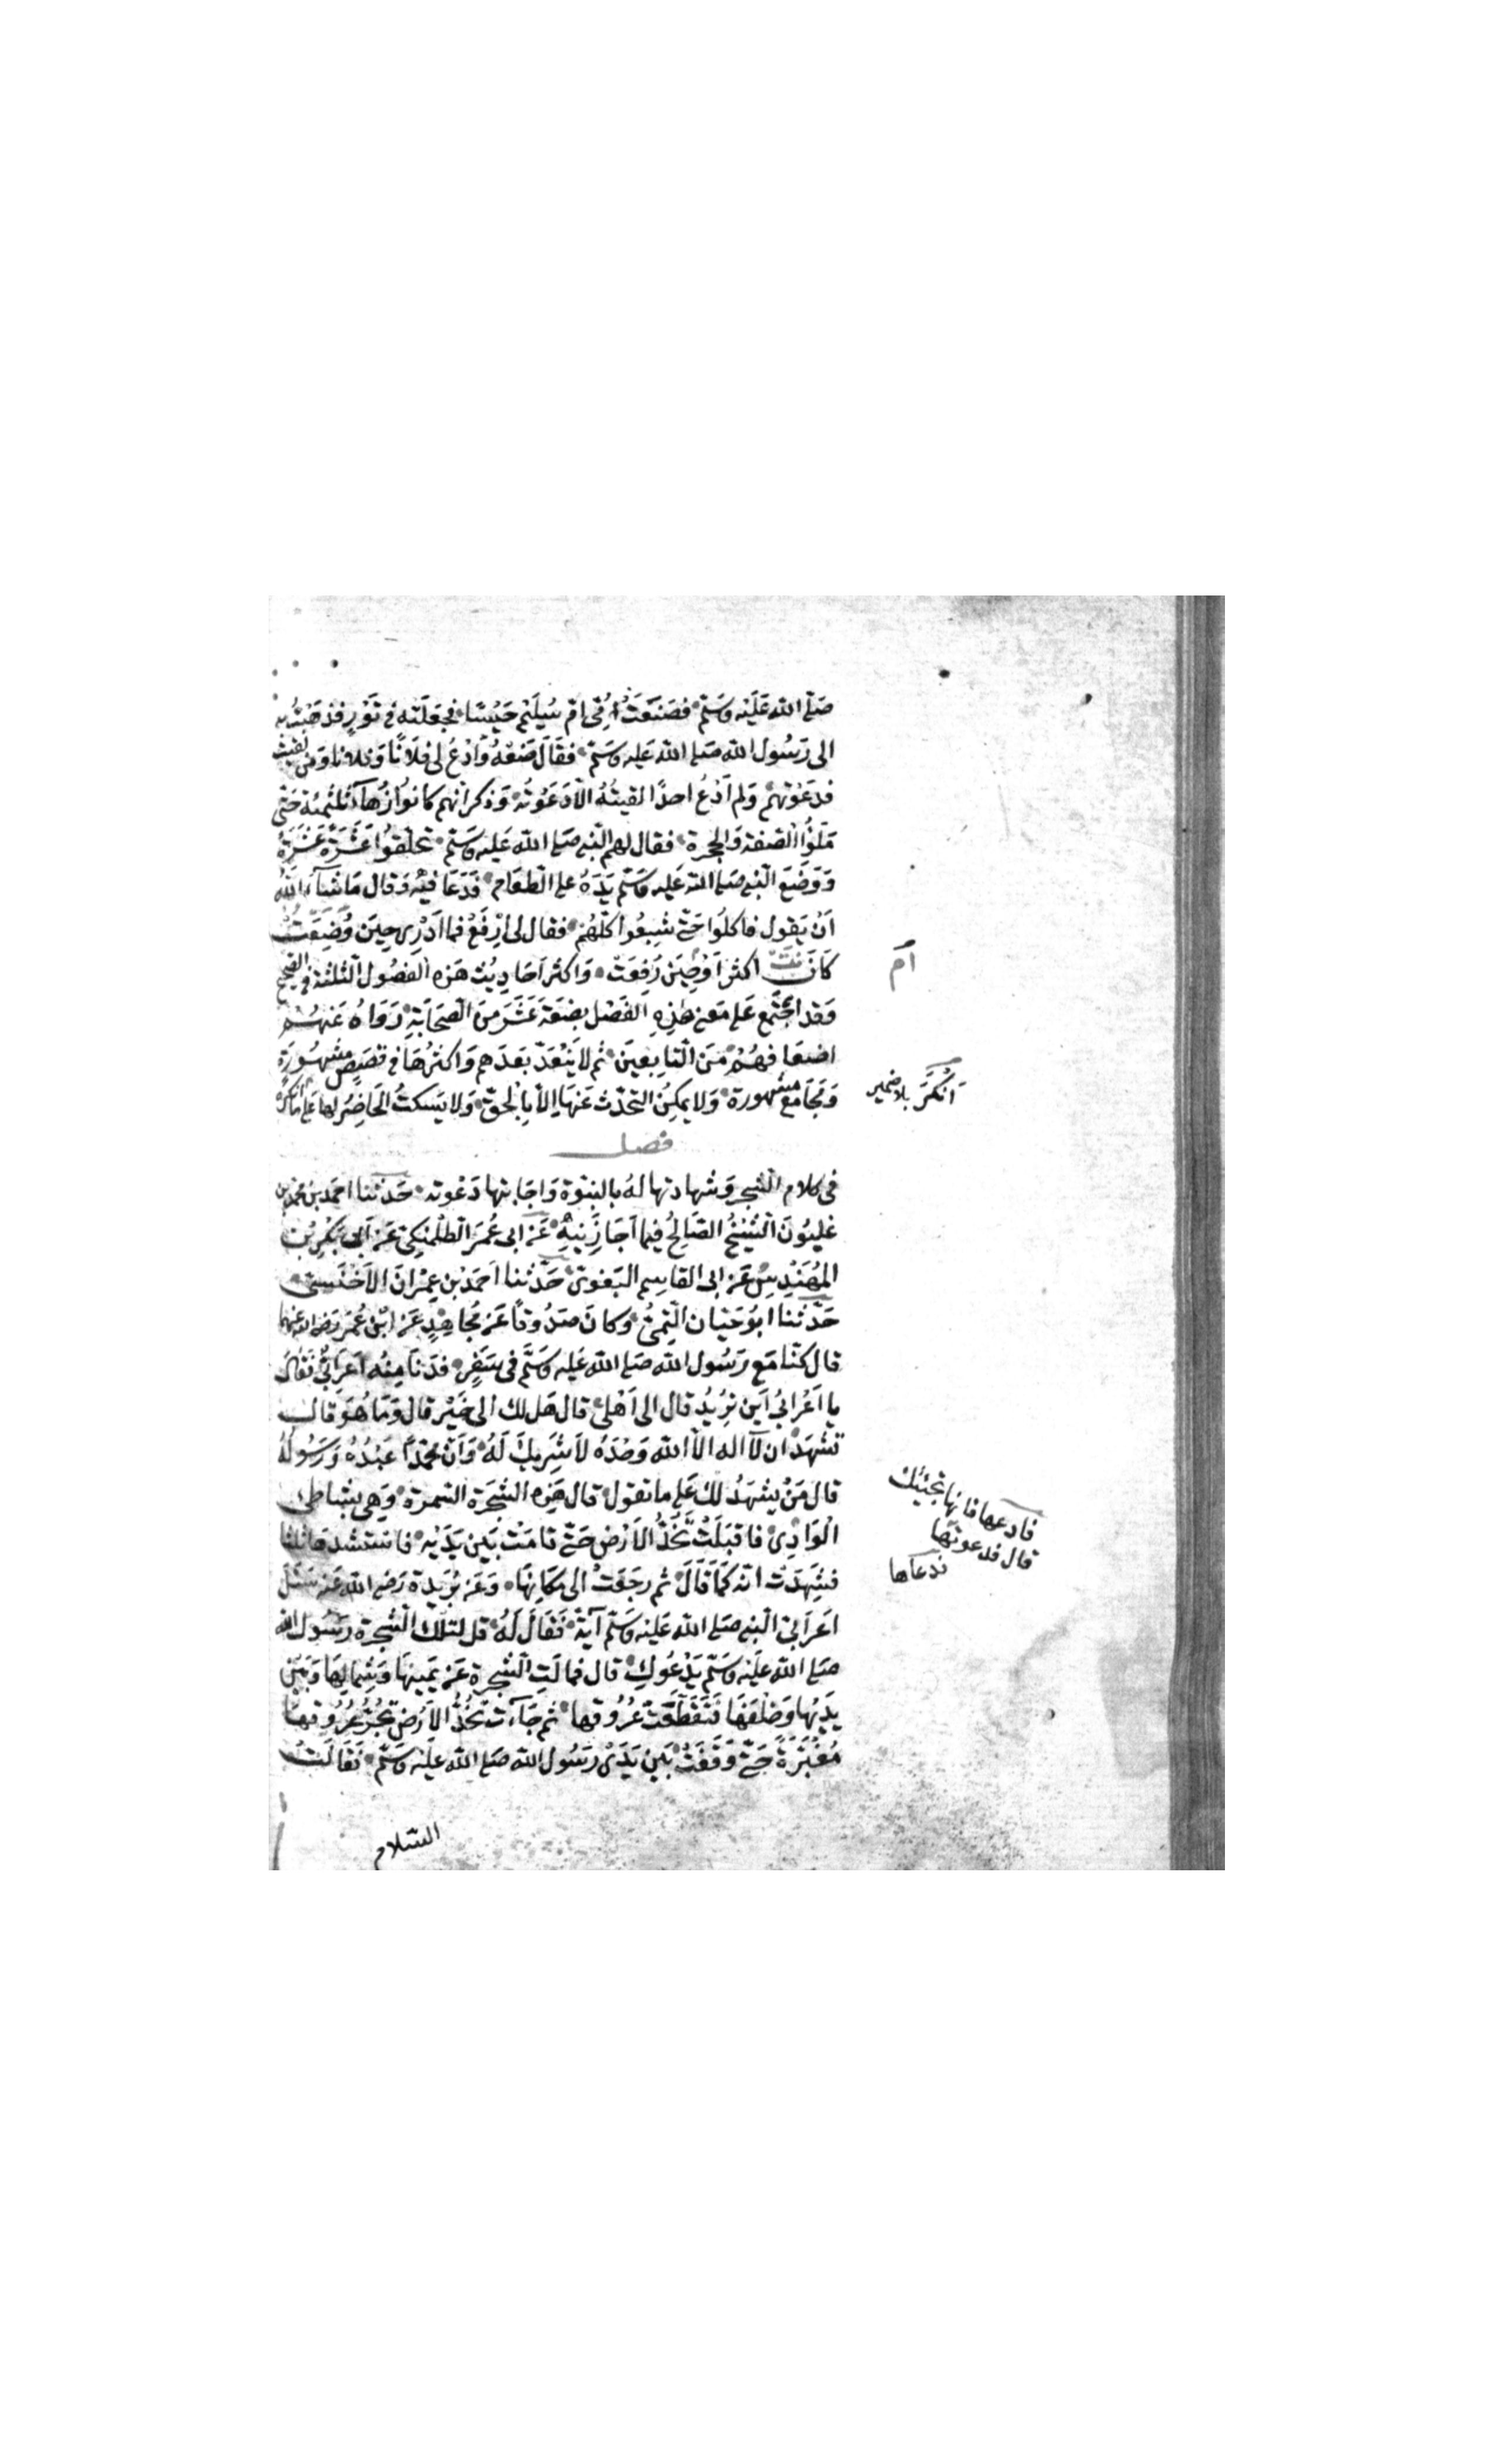 صَلَّى الله عَلَيْه وَسَلَّم فَصَنَعَتْ اُمِّى اُمّ سُلَيْم حَيْسًا فَجَعَلَتْه فى تَوْرٍ فَذَهَبْتُ به
الى رَسُول الله صَلى الله عَليه وسَلّم فقَالَ ضَعْهُ وَادْعُ لى فلَانًا وَفلانا وَمَن لَقيتَ
فدعَوْتهُم وَلم اَدَعْ احدًا لقيتُهُ الّا دَعَوْتُه وَذكرَ انهم كانوُا زُهَآءَ ثلثمئة حَتى
مَلَؤُا الصّفة وَالحجرة فقال لهم النّبى صَلى الله عَليه وسَلّم تحلّقوُا عَشَرَةً عَشَرَةً
وَوَضَعَ النّبى صَلى الله عَليه وَسَلّم يَدَهُ عَلى الطّعَام فَدَعَا فيْه وَقال مَا شَآءَ اللهُ
اَنْ يَقول فاكلُوا حَتّى شبِعُوا كلّهُم فقال لى ارْفَعْ فما اَدْرى حِينَ وُضِعَتْ
كَانَتْ اكثر اَوْ حِينَ رُفِعَت وَاكثر اَحَادِيث هَذه الفصُول الثّلثة فى الصّحيح
وَقد اجْتَمَع عَلى مَعنى هٰذِهِ الفَصْل بضعَة عَشَرَ مِنَ الصّحَابَةِ رَوَاهُ عَنهُمْ
اضعَافهُمْ مِنَ التّابِعِينَ ثم لَا يَنْعَدّ بَعدَهم وَاكثرُهَا فى قصَصٍ مشْهُورَةٍ
وَمَجَامع مشهورة وَلا يمكِنُ التحَدّث عَنهَا الّا بِالحَقّ وَلا يَسكتُ الحَاضِرُ لها عَلى مَا اَنكرَه
فصل
فى كلام الشّجر وَشهادتها لهُ بالنبوّة وَاجَابتها دَعْوته حَدّثنا احمد بن محمد بن
غلبُونَ الشّيْخُ الصّالحُ فيما اَجَازَنِيهِ عَن ابى عُمَرَ الطّلمنكى عَن اَبى بَكرِ بْن
المُهَنْدِسِ عَن ابى القاسِم البَغوىّ حَدّثنا اَحمَدُ بْن عِمْرانَ الاَخْنَسى
حَدّثنا ابوُ حَيّان التّيمىّ وكانَ صَدُوقًا عَن مُجَاهِدٍ عَن ابْن عُمَر رضى الله عنهما
قال كنّا مَعَ رَسُول الله صَلى الله عَليه وَسَلّم فى سَفَرٍ فدَنَا مِنْه اَعرَابىٌّ فَقالَ
يا اَعْرَابىُّ اَين تُرِيدُ قال الى اَهْلى قال هَل لك الى خَيْر قال وَمَا هُوَ قال
تَشْهَدُ ان لَآ اله الّا الله وَحْدَهُ لَا شَرِيكَ لَهُ وَاَنَّ محَمّدًا عَبْدُهُ وَرَسُولُهُ
قال مَنْ يشهَدُ لك عَلى ما تقول قال هَذِهِ الشجَرَة السّمرة وَهى بشَاطِئ
الْوَادِى فاقبَلَتْ تَخُدُّ الاَرْض حَتّى قامَتْ بَين يَدَيْه فاستَشهدَهَا ثلثًا
فشهِدَتْ انّه كمَا قَالَ ثم رجَعَتْ الى مكَانِهَا وَعَن بُرَيدة رَضى الله عَنه سَئَلَ
اَعرَابىّ النّبى صَلى الله عَليْه وَسَلّم آيَة فَقَالَ لَهُ قل لتلك الشّجرة رَسُول الله
صَلى الله عَليْه وَسَلّم يَدْعُوكِ قال فمالَتِ الشّجرة عَن يَمينِهَا وَشِمَالِهَا وَبَيْنَ
يَدَيْهَا وَخَلْفَهَا فَتَقَطَّعَتْ عُرُوقهَا ثم جَآءَت تَخُدُّ الاَرْضَ تَجُرّ عُرُوقهَا
مُغْبَرّةً حَتّى وَقَفَتْ بَين يَدَىْ رَسُول الله صَلى الله عَليْه وَسَلّم فَقَالَتْ
السّلام
اَم
اَنْكَرَ بلا ضمير
فادعها فانها تجيبك
قال فدعوتها
فدعاها